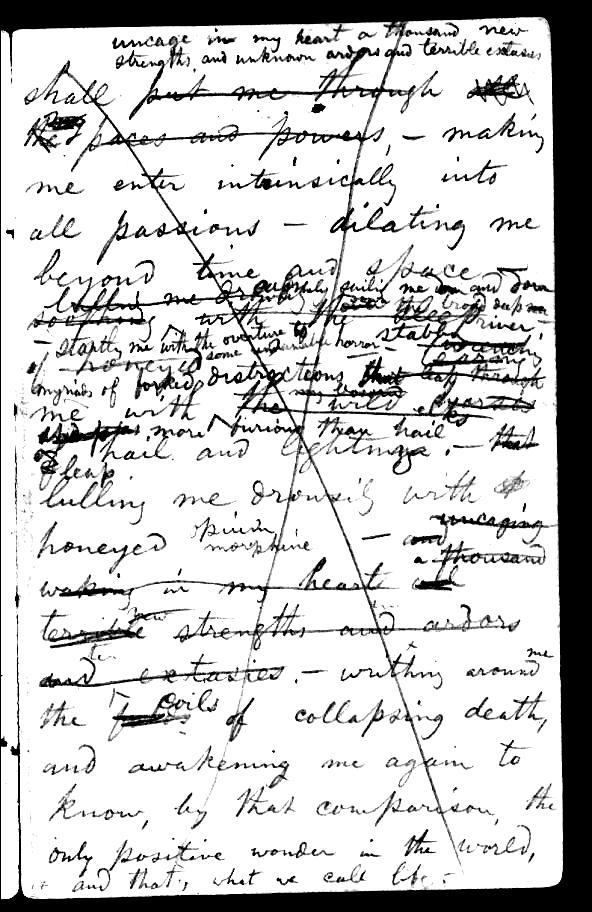 uncage in my heart a thousand new
strengths, and unknown ardors and terrible extasies
shall put me through
the paces and powers, — making
me enter intrinsically into
all passions — dilating me
beyond time and space —
me drowsily sailing me and down
soothing with the broad deep river,
— startly me with the overture to
some unnamable horror — stabbing
of honeyed
myriads of forked distractions that leap through
me with the wild
my bosom
more furious than hail
hail and lightning. — that
leap
lulling me drowsily with
honeyed opium morphine — and uncaging
a thousand
waking in my heart
terrible new strengths and ardors
and extasies. — writhing around me
the coils of collapsing death,
and awakening me again to
know, by that comparison, the
only positive wonder in the world,
and that's what we call life. —